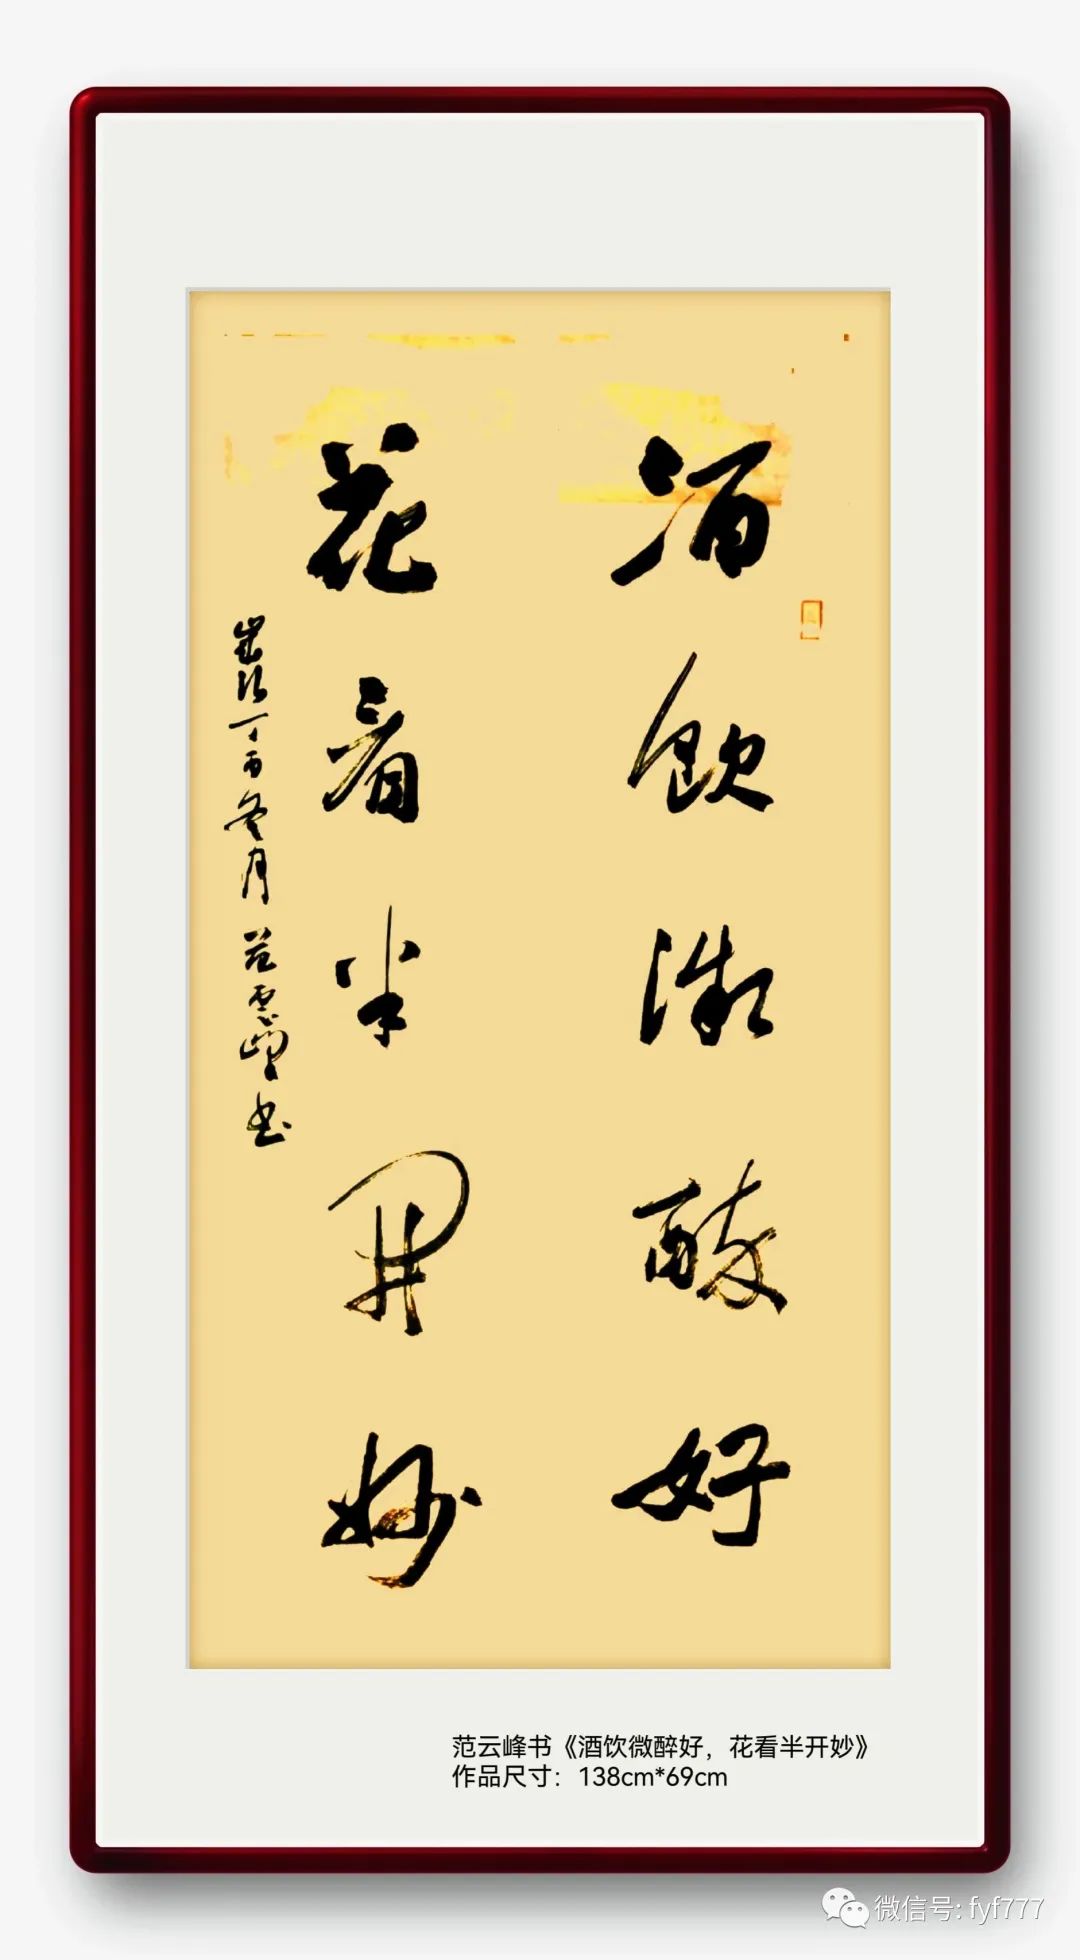 酒飲微醉好
花看半開妙
歲次丁酉冬月范雲峰书
范云峰书《酒饮微醉好，花看半开妙》
作品尺寸：138cm*69cm
微信号: fyf777